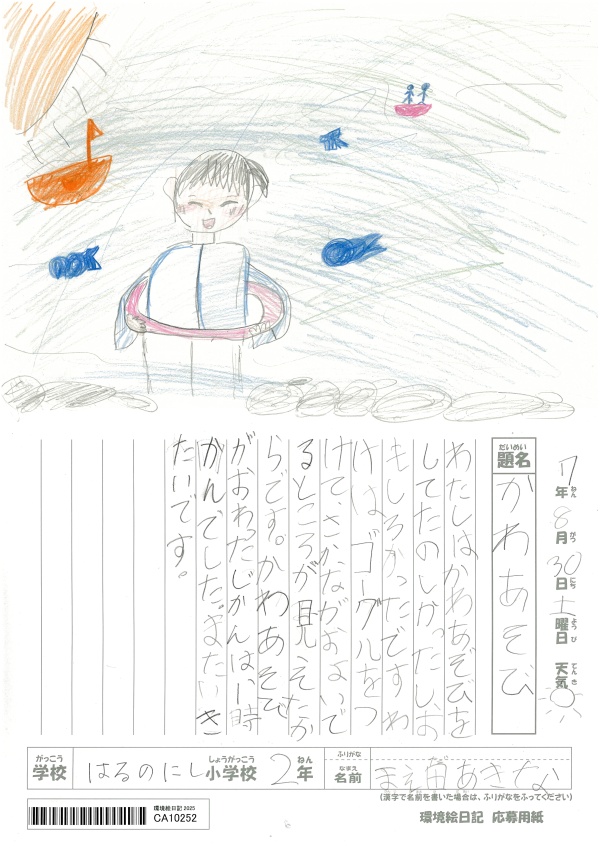 7年8月30日土曜日 天気
ねん がつ にち ようび てんき
だいめい
題名 かわあそび
わたしはかわあそびを
してたのしかったしお
もしろかったですわ
けは、ゴーグルをつ
けて、さかながおよいで
るところが見えたか
らです。かわあそび
がおわったじかんは、11時
かんでした。またいき
たいです。
がっこう しょうがっこう ねん
学校 はるのにし小学校 2年
ふりがな
なまえ
名前 まえ田あきな
(漢字で名前を書いた場合は、ふりがなをふってください)
環境絵日記 2025
CA10252
環境絵日記 応募用紙